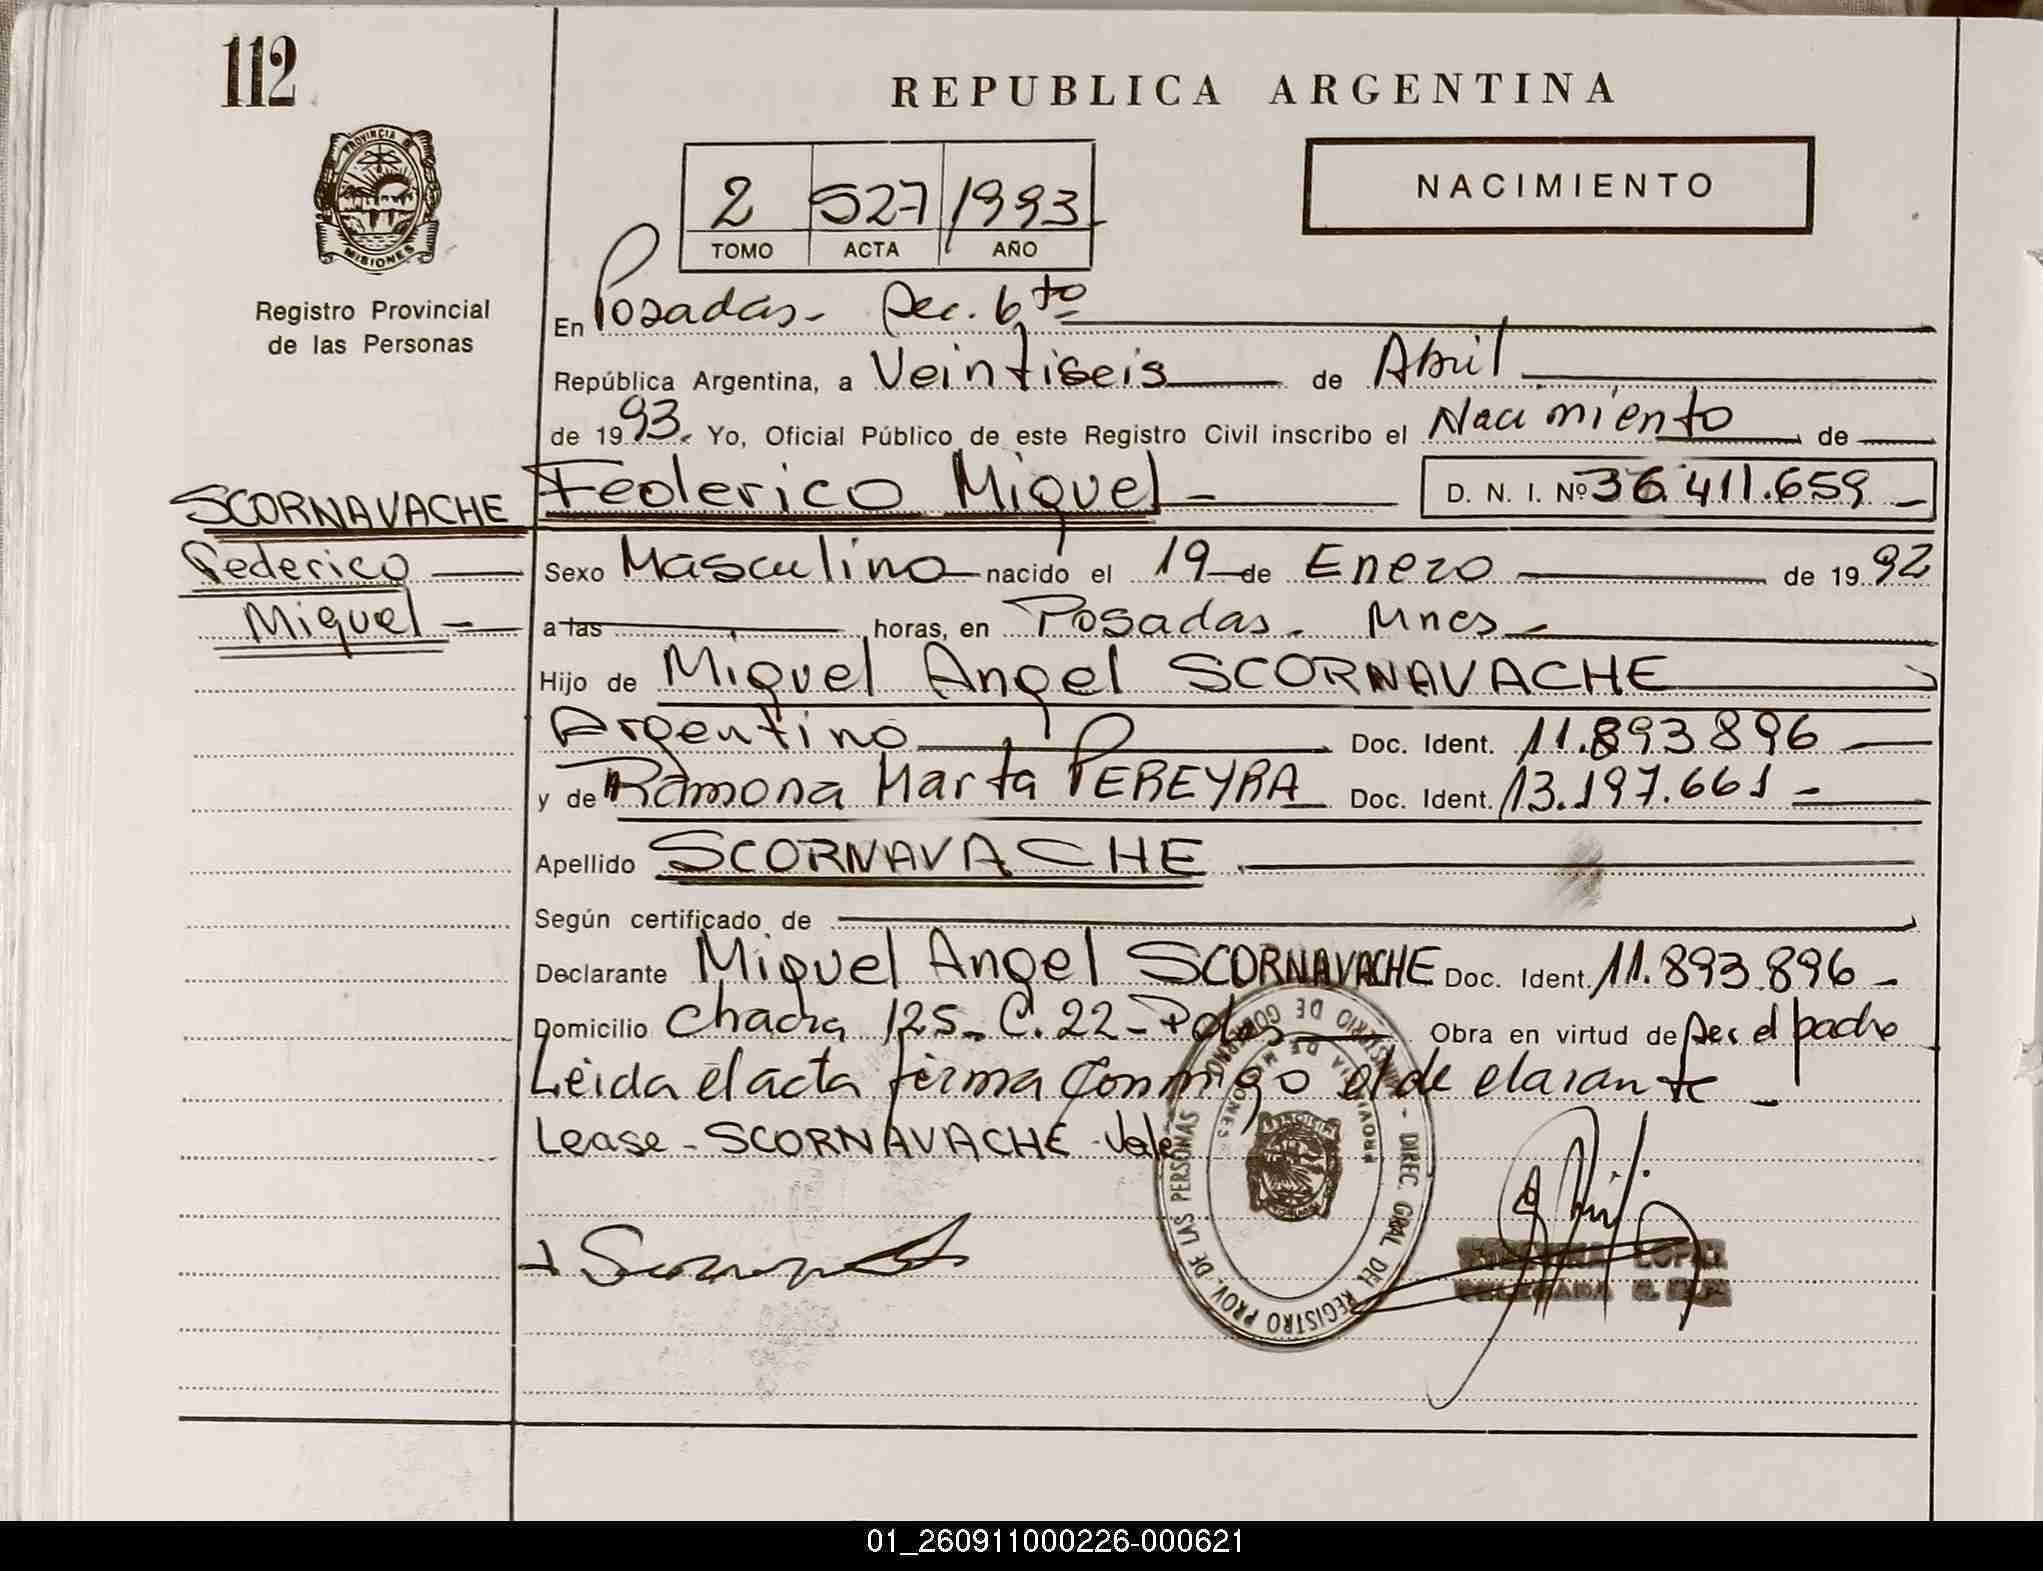 112
REPUBLICA ARGENTINA
PROVINCIA D
MISIONES
NACIMIENTO
2 527 1993
TOMO ACTA AÑO
Registro Provincial
de las Personas
En Posadas - Sec. 6to
República Argentina, a Veintiseis de Abril
de 1993. Yo, Oficial Público de este Registro Civil inscribo el Nacimiento de
SCORNAVACHE
Federico
Miguel
Federico Miguel - D. N. I. Nº 36.411.659 -
Sexo Masculino nacido el 19 de Enero de 1992
a las horas, en Posadas - Mnes -
Hijo de Miguel Angel SCORNAVACHE
Argentino Doc. Ident. 11.893.896
y de Ramona Marta PEREYRA Doc. Ident. 13.197.661 -
Apellido SCORNAVACHE.
Según certificado de
Declarante Miguel Angel SCORNAVACHE Doc. Ident. 11.893.896 -
Domicilio Chacra 125 - C. 22 - Pdas Obra en virtud de ser el padre
Leida el acta firma conmigo el declarante -
Lease - SCORNAVACHE - Vale
MINISTERIO DE GOBIERNO - DIREC. GRAL. DEL REGISTRO PROV. DE LAS PERSONAS
PROVINCIA DE MISIONES
LOPEZ
DELEGADA
01_260911000226-000621